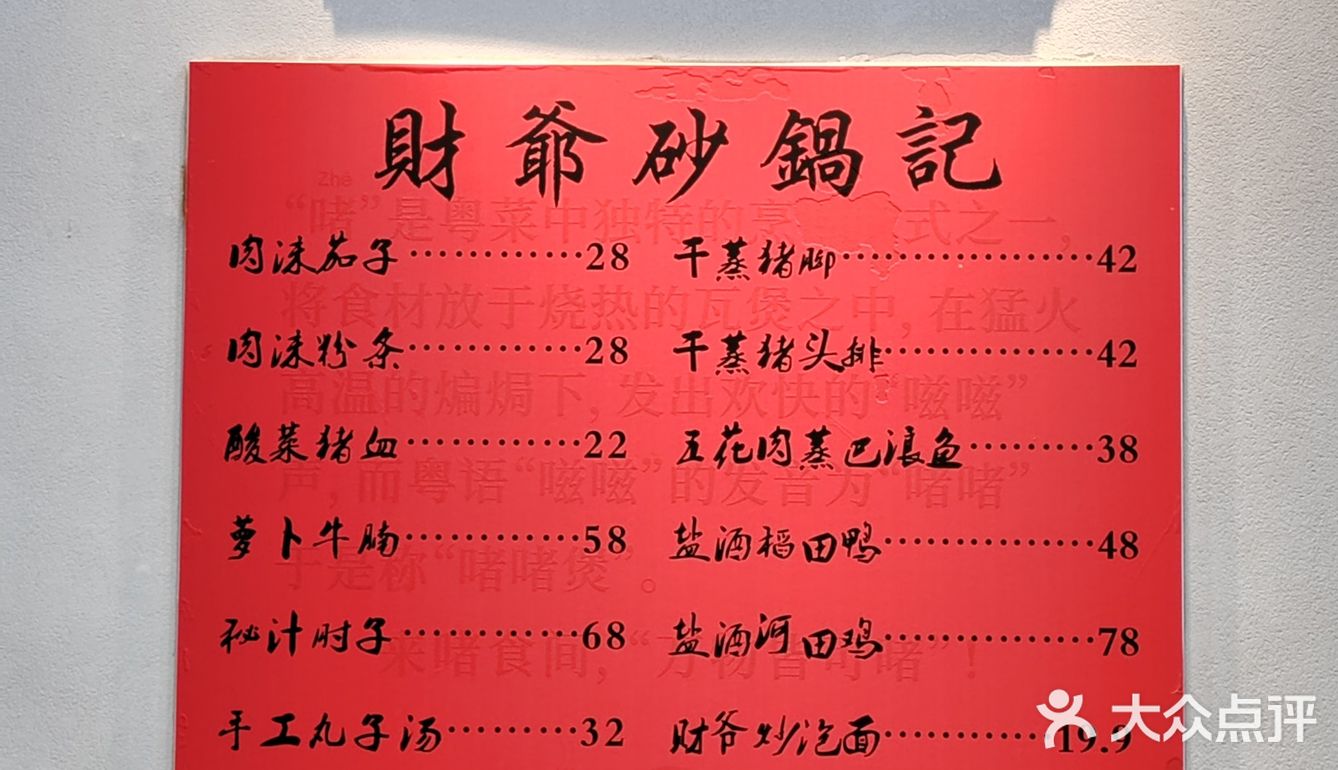 財爺砂鍋記
Zhě
“啫”是粤菜中独特的烹 式之一,
肉沫茄子············28 干蒸猪脚··················42
将食材放于烧热的瓦煲之中,在猛火
肉沫粉条············28 干蒸猪头排···············42
高温的煸焗下,发出欢快的“嗞嗞”
酸菜猪血············22 五花肉蒸巴浪鱼·········38
声,而粤语“嗞嗞”的发音为“啫啫”
萝卜牛腩·············58 盐酒稻田鸭···············48
于是称“啫啫煲”。
秘汁肘子·············68 盐酒河田鸡···············78
来啫食间,“万物皆可啫”!
手工丸子汤·········32 财爷炒泡面············19.9
大众点评